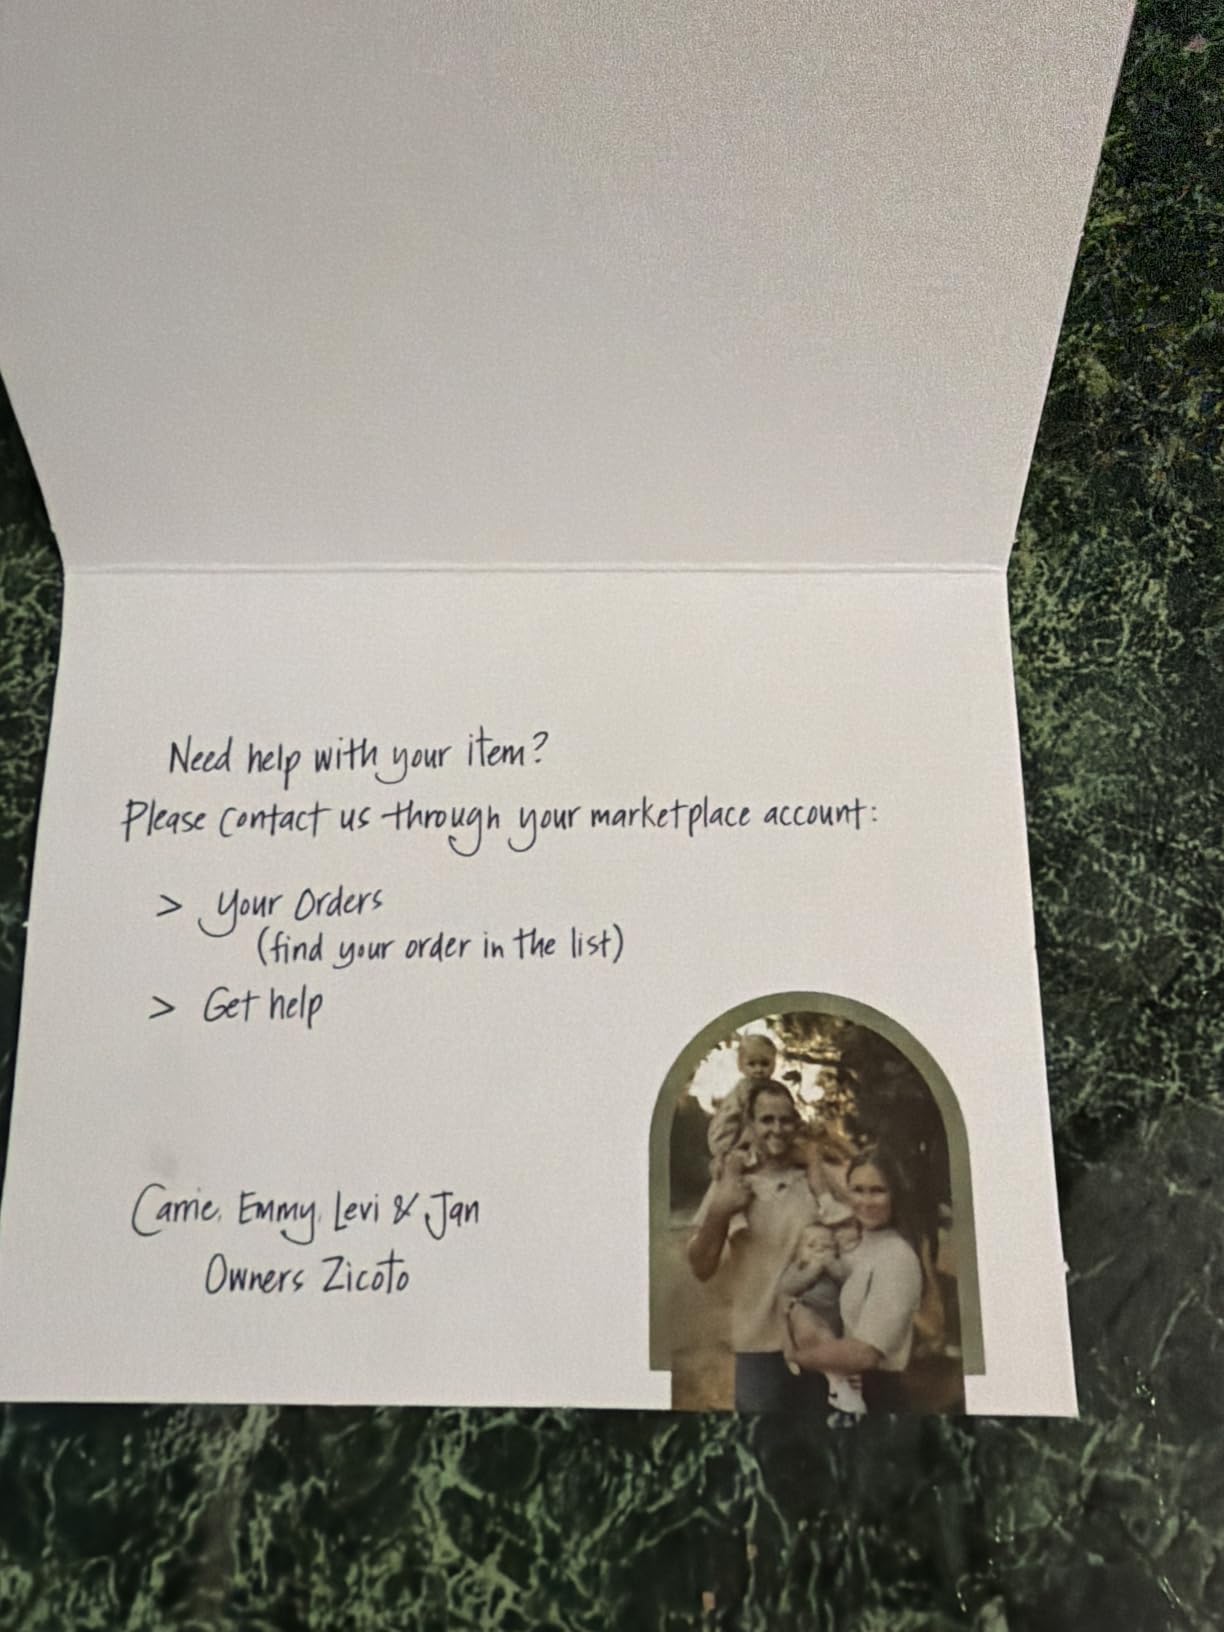 Need help with your item?
Please contact us through your marketplace account:
> Your Orders
(find your order in the list)
> Get help
Carrie, Emmy, Levi & Jan
Owners Zicoto